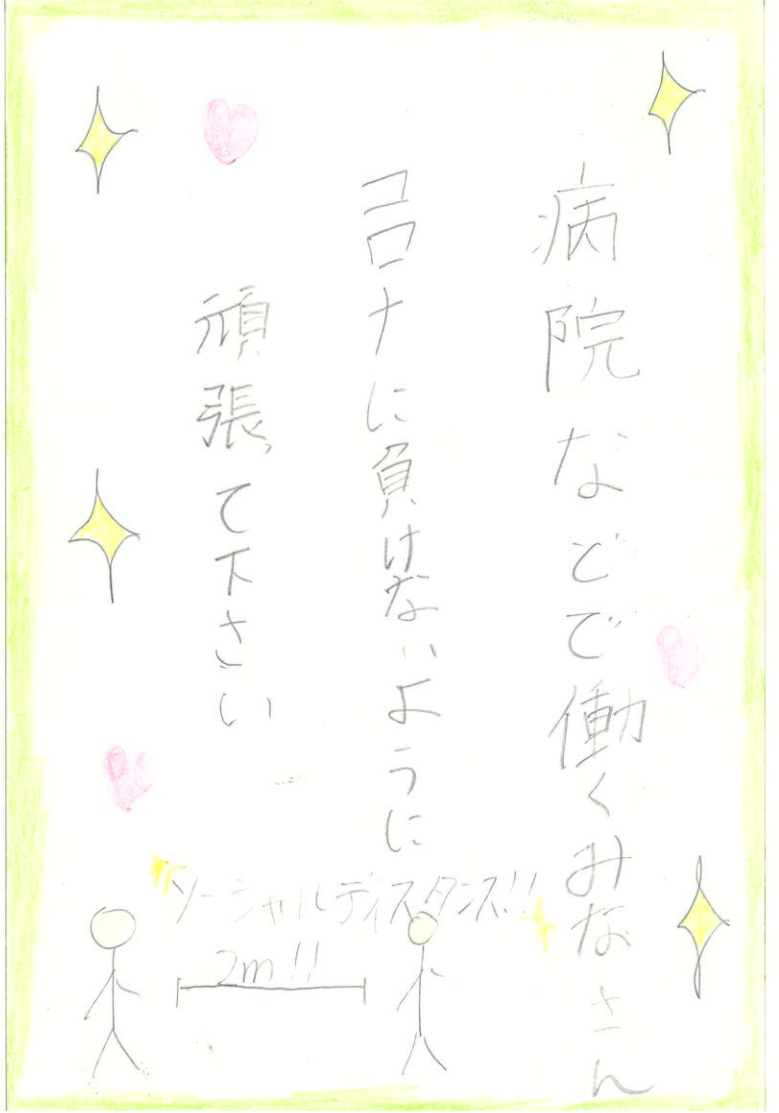 病院などで働くみなさん
コロナに負けないように
頑張って下さい
ソーシャルディスタンス!!
2m!!